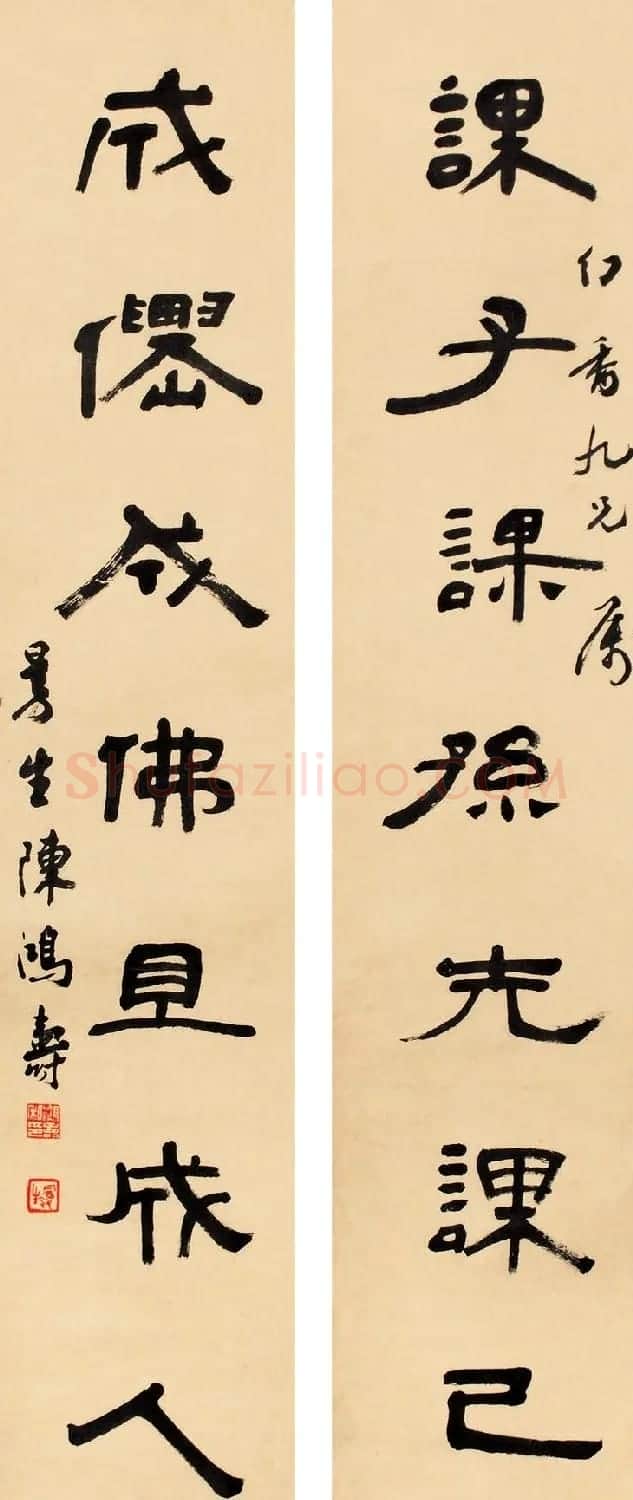 課子課孫先課己
幻香九兄属
成僊成佛且成人
曼生陳鴻壽
Shufaziliao.COM